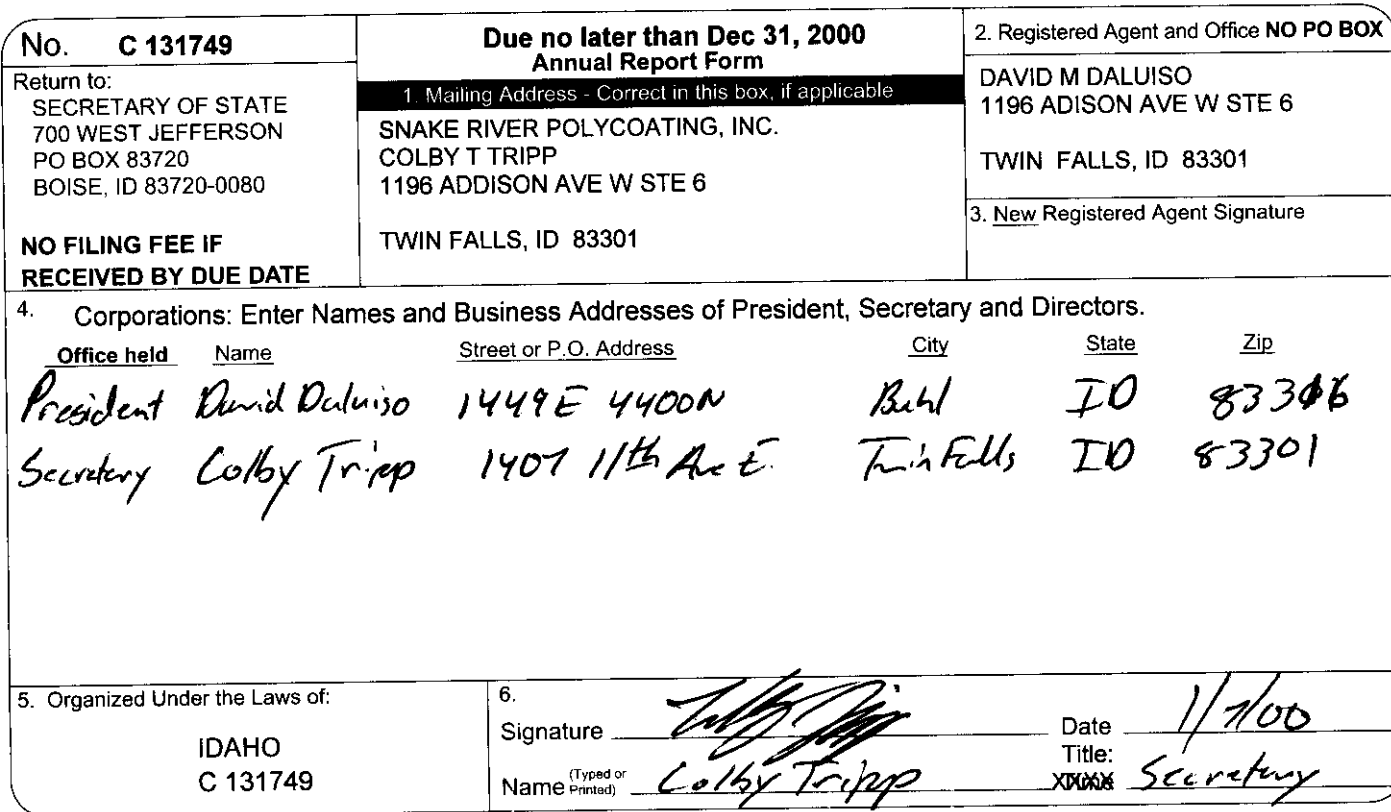 No. C 131749
Return to:
SECRETARY OF STATE
700 WEST JEFFERSON
PO BOX 83720
BOISE, ID 83720-0080
NO FILING FEE IF
RECEIVED BY DUE DATE
Due no later than Dec 31, 2000
Annual Report Form
1. Mailing Address - Correct in this box, if applicable
SNAKE RIVER POLYCOATING, INC.
COLBY T TRIPP
1196 ADDISON AVE W STE 6
TWIN FALLS, ID 83301
2. Registered Agent and Office NO PO BOX
DAVID M DALUISO
1196 ADISON AVE W STE 6
TWIN FALLS, ID 83301
3. New Registered Agent Signature
4. Corporations: Enter Names and Business Addresses of President, Secretary and Directors.
Office held Name Street or P.O. Address City State Zip
President David Daluiso 1449E 4400N Buhl ID 83316
Secretary Colby Tripp 1407 11th Ave E. Twin Falls ID 83301
5. Organized Under the Laws of:
IDAHO
C 131749
6.
Signature Colby Tripp Date 1/7/00
Name (Typed or Printed) Colby Tripp Title: Secretary